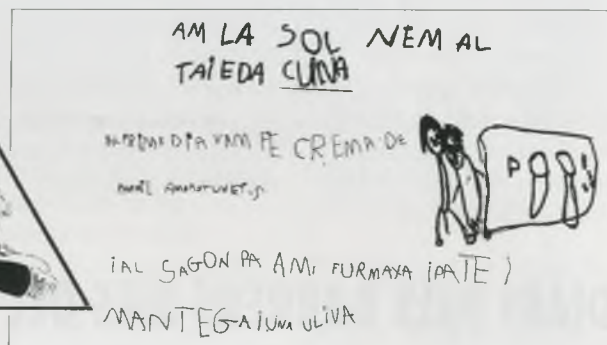 AM LA SOL NEM AL
TAIEDA CUINA
DIA VAM FE CREMA DE
P
IAL SAGON PA AMI FURMAXA IPATE I
MANTEGA IUNA ULIVA